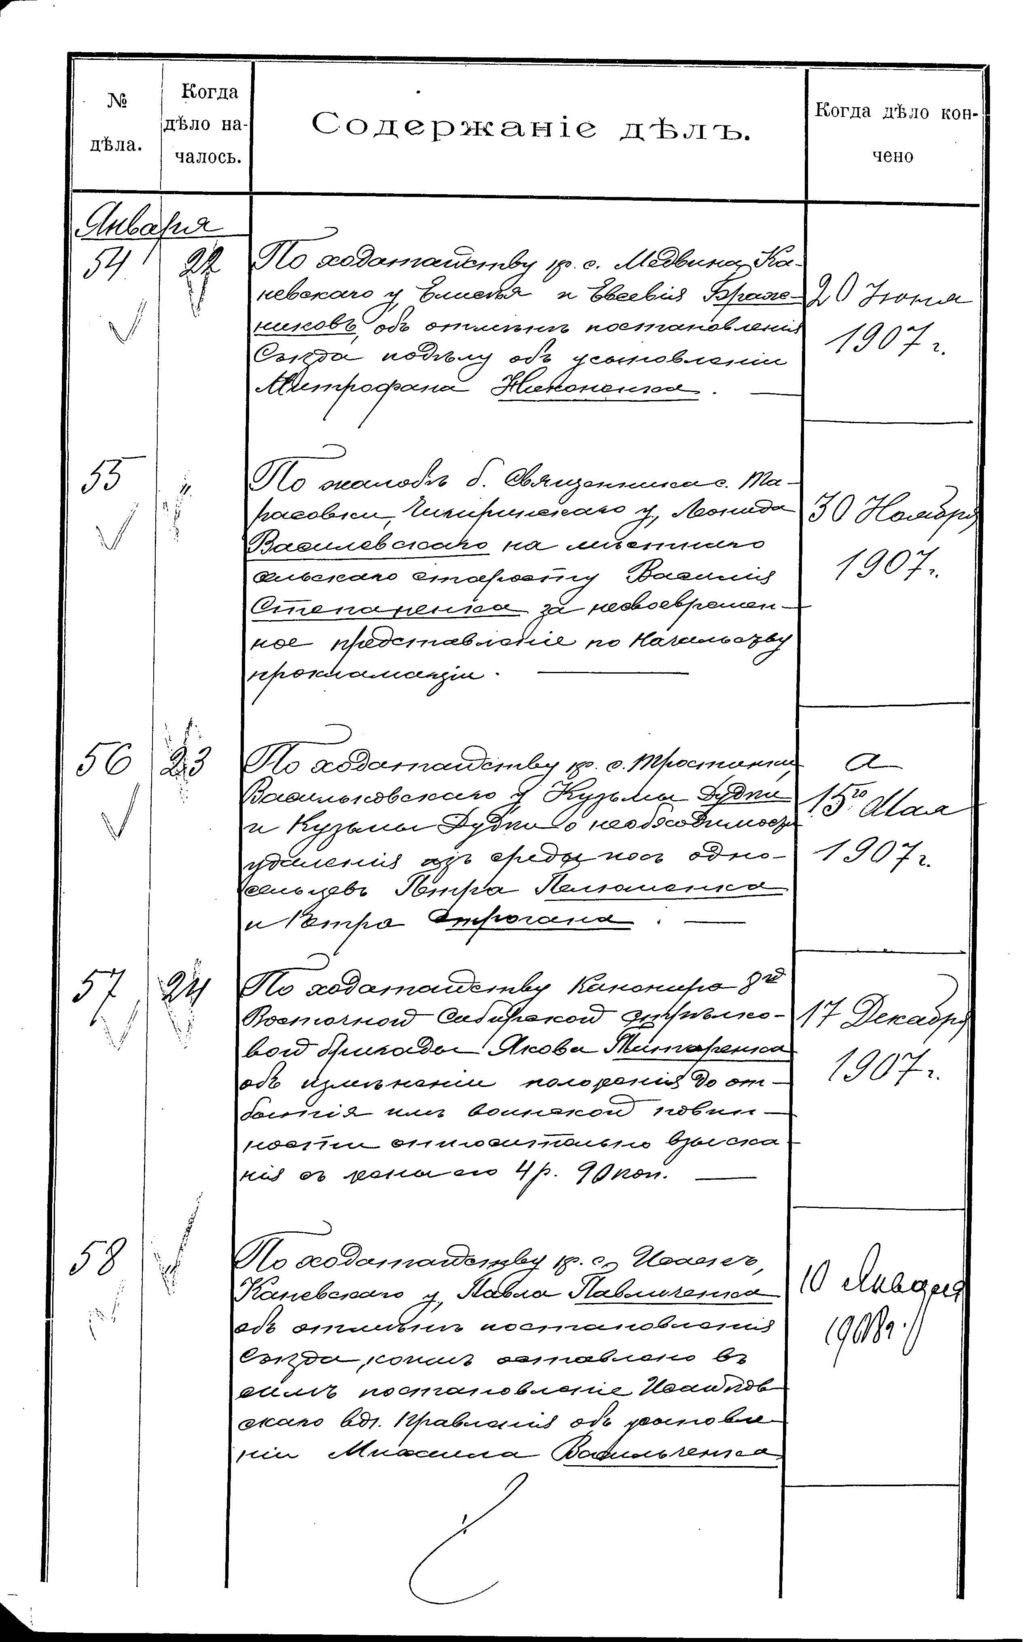 № дѣла.
Когда дѣло на-
чалось.
Содержаніе дѣлъ.
Когда дѣло кон-
чено
Января
54 22 По ходатайству кр. с. Медвина, Ка-
невскаго у, Елисея и Евсевія Браж-
никовъ, объ отмѣнѣ постановленія
Съѣзда по дѣлу объ усыновленіи
Митрофана Никоненка.
20 Іюня
1907 г.
55 " По жалобѣ б. Священника с. Та-
расовки, Чигиринскаго у, Леонида
Василевскаго на мѣстнаго
сельскаго старосту Василія
Степаненка за несвоевремен-
ное представленіе по Начальству
прокламаціи.
30 Ноября
1907 г.
56 23 По ходатайству кр. с. Тростинки,
Васильковскаго у Кузьмы Дудки
и Кузьмы Дудки о необходимости
удаленія изъ среды ихъ одно-
сельцевъ Петра
и Петра Строгана.
15го Мая
1907 г.
57 24 По ходатайству Канонира 8й
Восточной Сибирской стрѣлко-
вой бригады Якова Титаренка
объ измѣненіи положенія до от-
бытія имъ воинской повин-
ности относительно взыска-
нія съ жены его 4 р. 90 коп.
17 Декабря
1907 г.
58 По ходатайству кр. с,
Каневскаго у, Павла Павличенка
объ отмѣнѣ постановленія
Съѣзда, коимъ оставлено въ
силѣ постановленіе
скаго вол. Правленія объ усыновле-
ніи Михаила Васильченка
10 Января
1908 г.